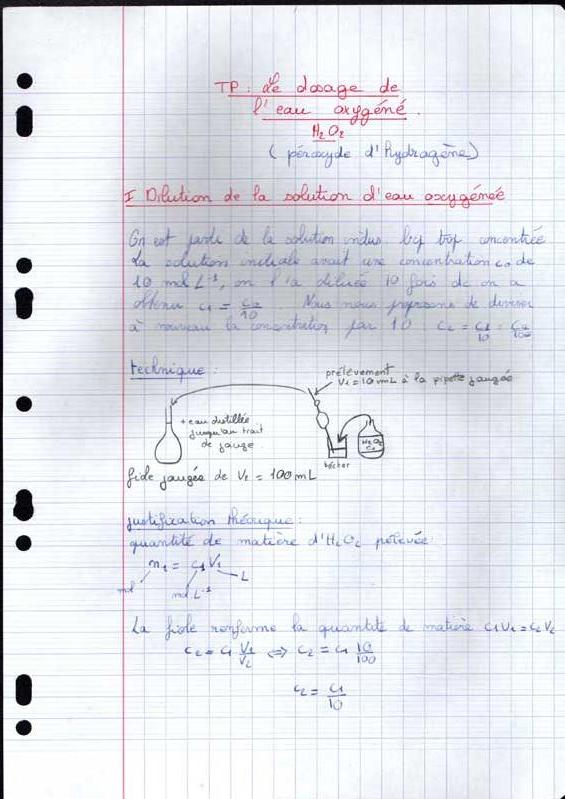 TP : Le dosage de
l'eau oxygéné.
H₂O₂
(péroxyde d'hydrogène)
I Dilution de la solution d'eau oxygénéé
On est parti de la solution indus. bcp trop concentrée
La solution initiale avait une concentration c₀ de
10 mol L⁻¹, on l'a diluée 10 fois de on a
obtenu c₁ = c₀/10 Nous nous proposons de diviser
à nouveau la concentration par 10 : c₂ = c₁/10 = c₀/100
technique :
prélèvement
V₁ = 10 mL à la pipette jaugée
+ eau distillée
jusqu'au trait
de jauge.
H₂O₂
bécher
fiole jaugée de V₂ = 100 mL
justification théorique :
quantité de matière d'H₂O₂ prélevée :
n₁ = c₁V₁
mol mol L⁻¹ L
La fiole renferme la quantité de matière c₁V₁ = c₂V₂
c₂ = c₁ V₁/V₂ ⇔ c₂ = c₁ 10/100
c₂ = c₁/10